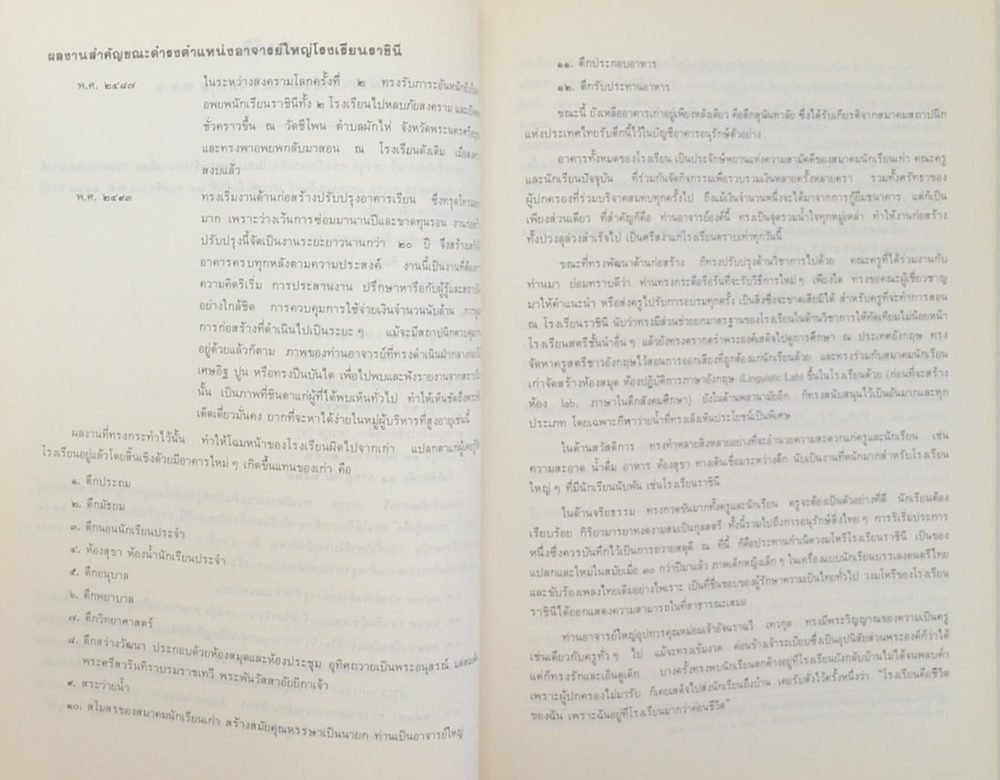 ผลงานสำคัญขณะดำรงตำแหน่งอาจารย์ใหญ่โรงเรียนราชินี
พ.ศ. ๒๔๘๗ ในระหว่างสงครามโลกครั้งที่ ๒ ทรงรับภาระอันหนัก
อพยพนักเรียนราชินีทั้ง ๒ โรงเรียนไปหลบภัยสงคราม
ชั่วคราวขึ้น ณ วัดชีโพน ตำบลผักไห่ จังหวัดพระนครศรีอยุธยา
และทรงพาอพยพกลับมาสอน ณ โรงเรียนดังเดิม
สงบแล้ว
พ.ศ. ๒๔๙๓ ทรงเริ่มงานด้านก่อสร้างปรับปรุงอาคารเรียน ซึ่งทรุดโทรม
มาก เพราะว่างเว้นการซ่อมมานานปีและขาดทุนรอน
ปรับปรุงนี้จัดเป็นงานระยะยาวนานกว่า ๒๐ ปี จึงสร้าง
อาคารครบทุกหลังตามความประสงค์ งานนี้เป็นงานที่ต้อง
ความคิดริเริ่ม การประสานงาน ปรึกษาหารือกับผู้รู้และ
อย่างใกล้ชิด การควบคุมการใช้จ่ายเงินจำนวนนับล้าน
การก่อสร้างที่ดำเนินไปเป็นระยะๆ แม้จะมีสถาปนิกควบคุม
อยู่ด้วยแล้วก็ตาม ภาพของท่านอาจารย์ที่ทรงดำเนินฝ่ากลาง
เศษอิฐ ปูน หรือทรงปีนบันได เพื่อไปพบและฟังรายงานจาก
นั้น เป็นภาพที่ชินตาแก่ผู้ที่ได้พบเห็นทั่วไป ทำให้เห็นชัดถึง
เด็ดเดี่ยวมั่นคง ยากที่จะหาได้ง่ายในหมู่ผู้บริหารที่สูงอายุเช่นนี้
ผลงานที่ทรงกระทำไว้นั้น ทำให้โฉมหน้าของโรงเรียนผิดไปจากเก่า แปลกตาแก่ผู้เคย
โรงเรียนอยู่แล้วโดยสิ้นเชิงด้วยมีอาคารใหม่ๆ เกิดขึ้นแทนของเก่า คือ
๑. ตึกประถม
๒. ตึกมัธยม
๓. ตึกนอนนักเรียนประจำ
๔. ห้องสุขา ห้องน้ำนักเรียนประจำ
๕. ตึกอนุบาล
๖. ตึกพยาบาล
๗. ตึกวิทยาศาสตร์
๘. ตึกสว่างวัฒนา ประกอบด้วยห้องสมุดและห้องประชุม อุทิศถวายเป็นพระอนุสรณ์
พระศรีสวรินทิราบรมราชเทวี พระพันวัสสาอัยยิกาเจ้า
๙. สระว่ายน้ำ
๑๐. สโมสรของสมาคมนักเรียนเก่า สร้างสมัยคุณหรรษาเป็นนายก ท่านเป็นอาจารย์ใหญ่
๑๑. ตึกประกอบอาหาร
๑๒. ตึกรับประทานอาหาร
ขณะนี้ ยังเหลืออาคารเก่าอยู่เพียงหลังเดียว คือตึกสุนันทาลัย ซึ่งได้รับเกียรติจากสมาคมสถาปนิก
แห่งประเทศไทยรับตึกนี้ไว้ในบัญชีอาคารอนุรักษ์ตัวอย่าง
อาคารทั้งหมดของโรงเรียน เป็นประจักษ์พยานแห่งความสามัคคีของสมาคมนักเรียนเก่า คณะครู
และนักเรียนปัจจุบัน ที่ร่วมกันจัดกิจกรรมเพื่อรวบรวมเงินหลายครั้งหลายครา รวมทั้งศรัทธาของ
ผู้ปกครองที่ร่วมบริจาคสมทบทุกครั้งไป ถึงแม้เงินจำนวนหนึ่งจะได้มาจากการกู้ยืมธนาคาร แต่ก็เป็น
เพียงส่วนเดียว ที่สำคัญก็คือ ท่านอาจารย์องค์นี้ ทรงเป็นจุดรวมน้ำใจทุกหมู่เหล่า ทำให้งานก่อสร้าง
ทั้งปวงลุล่วงสำเร็จไป เป็นศรีสง่าแก่โรงเรียนตราบเท่าทุกวันนี้
ขณะที่ทรงพัฒนาด้านก่อสร้าง ก็ทรงปรับปรุงด้านวิชาการไปด้วย คณะครูที่ได้ร่วมงานกับ
ท่านมา ย่อมทราบดีว่า ท่านทรงกระตือรือร้นที่จะรับวิธีการใหม่ๆ เพียงใด ทรงขอคณะผู้เชี่ยวชาญ
มาให้คำแนะนำ หรือส่งครูไปรับการอบรมทุกครั้ง เป็นสิ่งซึ่งจะขาดเสียมิได้ สำหรับครูที่จะทำการสอน
ณ โรงเรียนราชินี นับว่าทรงมีส่วนช่วยยกมาตรฐานของโรงเรียนในด้านวิชาการให้ทัดเทียมไม่น้อยหน้า
โรงเรียนสตรีชั้นนำอื่นๆ แล้วยังทรงตรากตรำพระองค์เสด็จไปดูการศึกษา ณ ประเทศอังกฤษ ทรง
จัดหาครูสตรีชาวอังกฤษไว้สอนการออกเสียงที่ถูกต้องแก่นักเรียนด้วย และทรงร่วมกับสมาคมนักเรียน
เก่าจัดสร้างห้องสมุด ห้องปฏิบัติการภาษาอังกฤษ (Linguistic Lab) ขึ้นในโรงเรียนด้วย (ก่อนที่จะสร้าง
ห้อง lab. ภาษาในตึกสังคมศึกษา) ยังในด้านพลานามัยอีก ก็ทรงสนับสนุนไว้เป็นอันมากและทุก
ประเภท โดยเฉพาะกีฬาว่ายน้ำที่ทรงเล็งเห็นประโยชน์เป็นพิเศษ
ในด้านสวัสดิการ ทรงทำหลายสิ่งหลายอย่างที่จะอำนวยความสะดวกแก่ครูและนักเรียน เช่น
ความสะอาด น้ำดื่ม อาหาร ห้องสุขา ทางเดินเชื่อมระหว่างตึก นับเป็นงานที่หนักมากสำหรับโรงเรียน
ใหญ่ๆ ที่มีนักเรียนนับพัน เช่นโรงเรียนราชินี
ในด้านจริยธรรม ทรงกวดขันมากทั้งครูและนักเรียน ครูจะต้องเป็นตัวอย่างที่ดี นักเรียนต้อง
เรียบร้อย กิริยามารยาทงดงามสมเป็นกุลสตรี ทั้งนี้รวมไปถึงการอนุรักษ์สิ่งไทยๆ การริเริ่มประการ
หนึ่งซึ่งควรบันทึกไว้เป็นการถวายสดุดี ณ ที่นี้ ก็คือประทานกำเนิดวงมโหรีโรงเรียนราชินี เป็นของ
แปลกและใหม่ในสมัยเมื่อ ๓๐ กว่าปีมาแล้ว ภาพเด็กหญิงเล็กๆ ในเครื่องแบบนักเรียนบรรเลงดนตรีไทย
และขับร้องเพลงไทยเดิมอย่างไพเราะ เป็นที่ชื่นชอบของผู้รักความเป็นไทยทั่วไป วงมโหรีของโรงเรียน
ราชินีได้ออกแสดงความสามารถในที่สาธารณะเสมอ
ท่านอาจารย์ใหญ่อุปการคุณหม่อมเจ้าอัจฉราฉวี เทวกุล ทรงมีพระวิญญาณของความเป็นครู
เช่นเดียวกับครูทั่วๆ ไป แม้จะทรงเข้มงวด ค่อนข้างเจ้าระเบียบซึ่งเป็นอุปนิสัยส่วนพระองค์ก็ว่าได้
แต่ก็ทรงรักและเอ็นดูเด็ก บางครั้งทรงพบนักเรียนตกค้างอยู่ที่โรงเรียนยังกลับบ้านไม่ได้จนพลบค่ำ
เพราะผู้ปกครองไม่มารับ ก็เคยเสด็จไปส่งนักเรียนถึงบ้าน เคยรับสั่งไว้ครั้งหนึ่งว่า "โรงเรียนคือชีวิต
ของฉัน เพราะฉันอยู่ที่โรงเรียนมากว่าค่อนชีวิต"